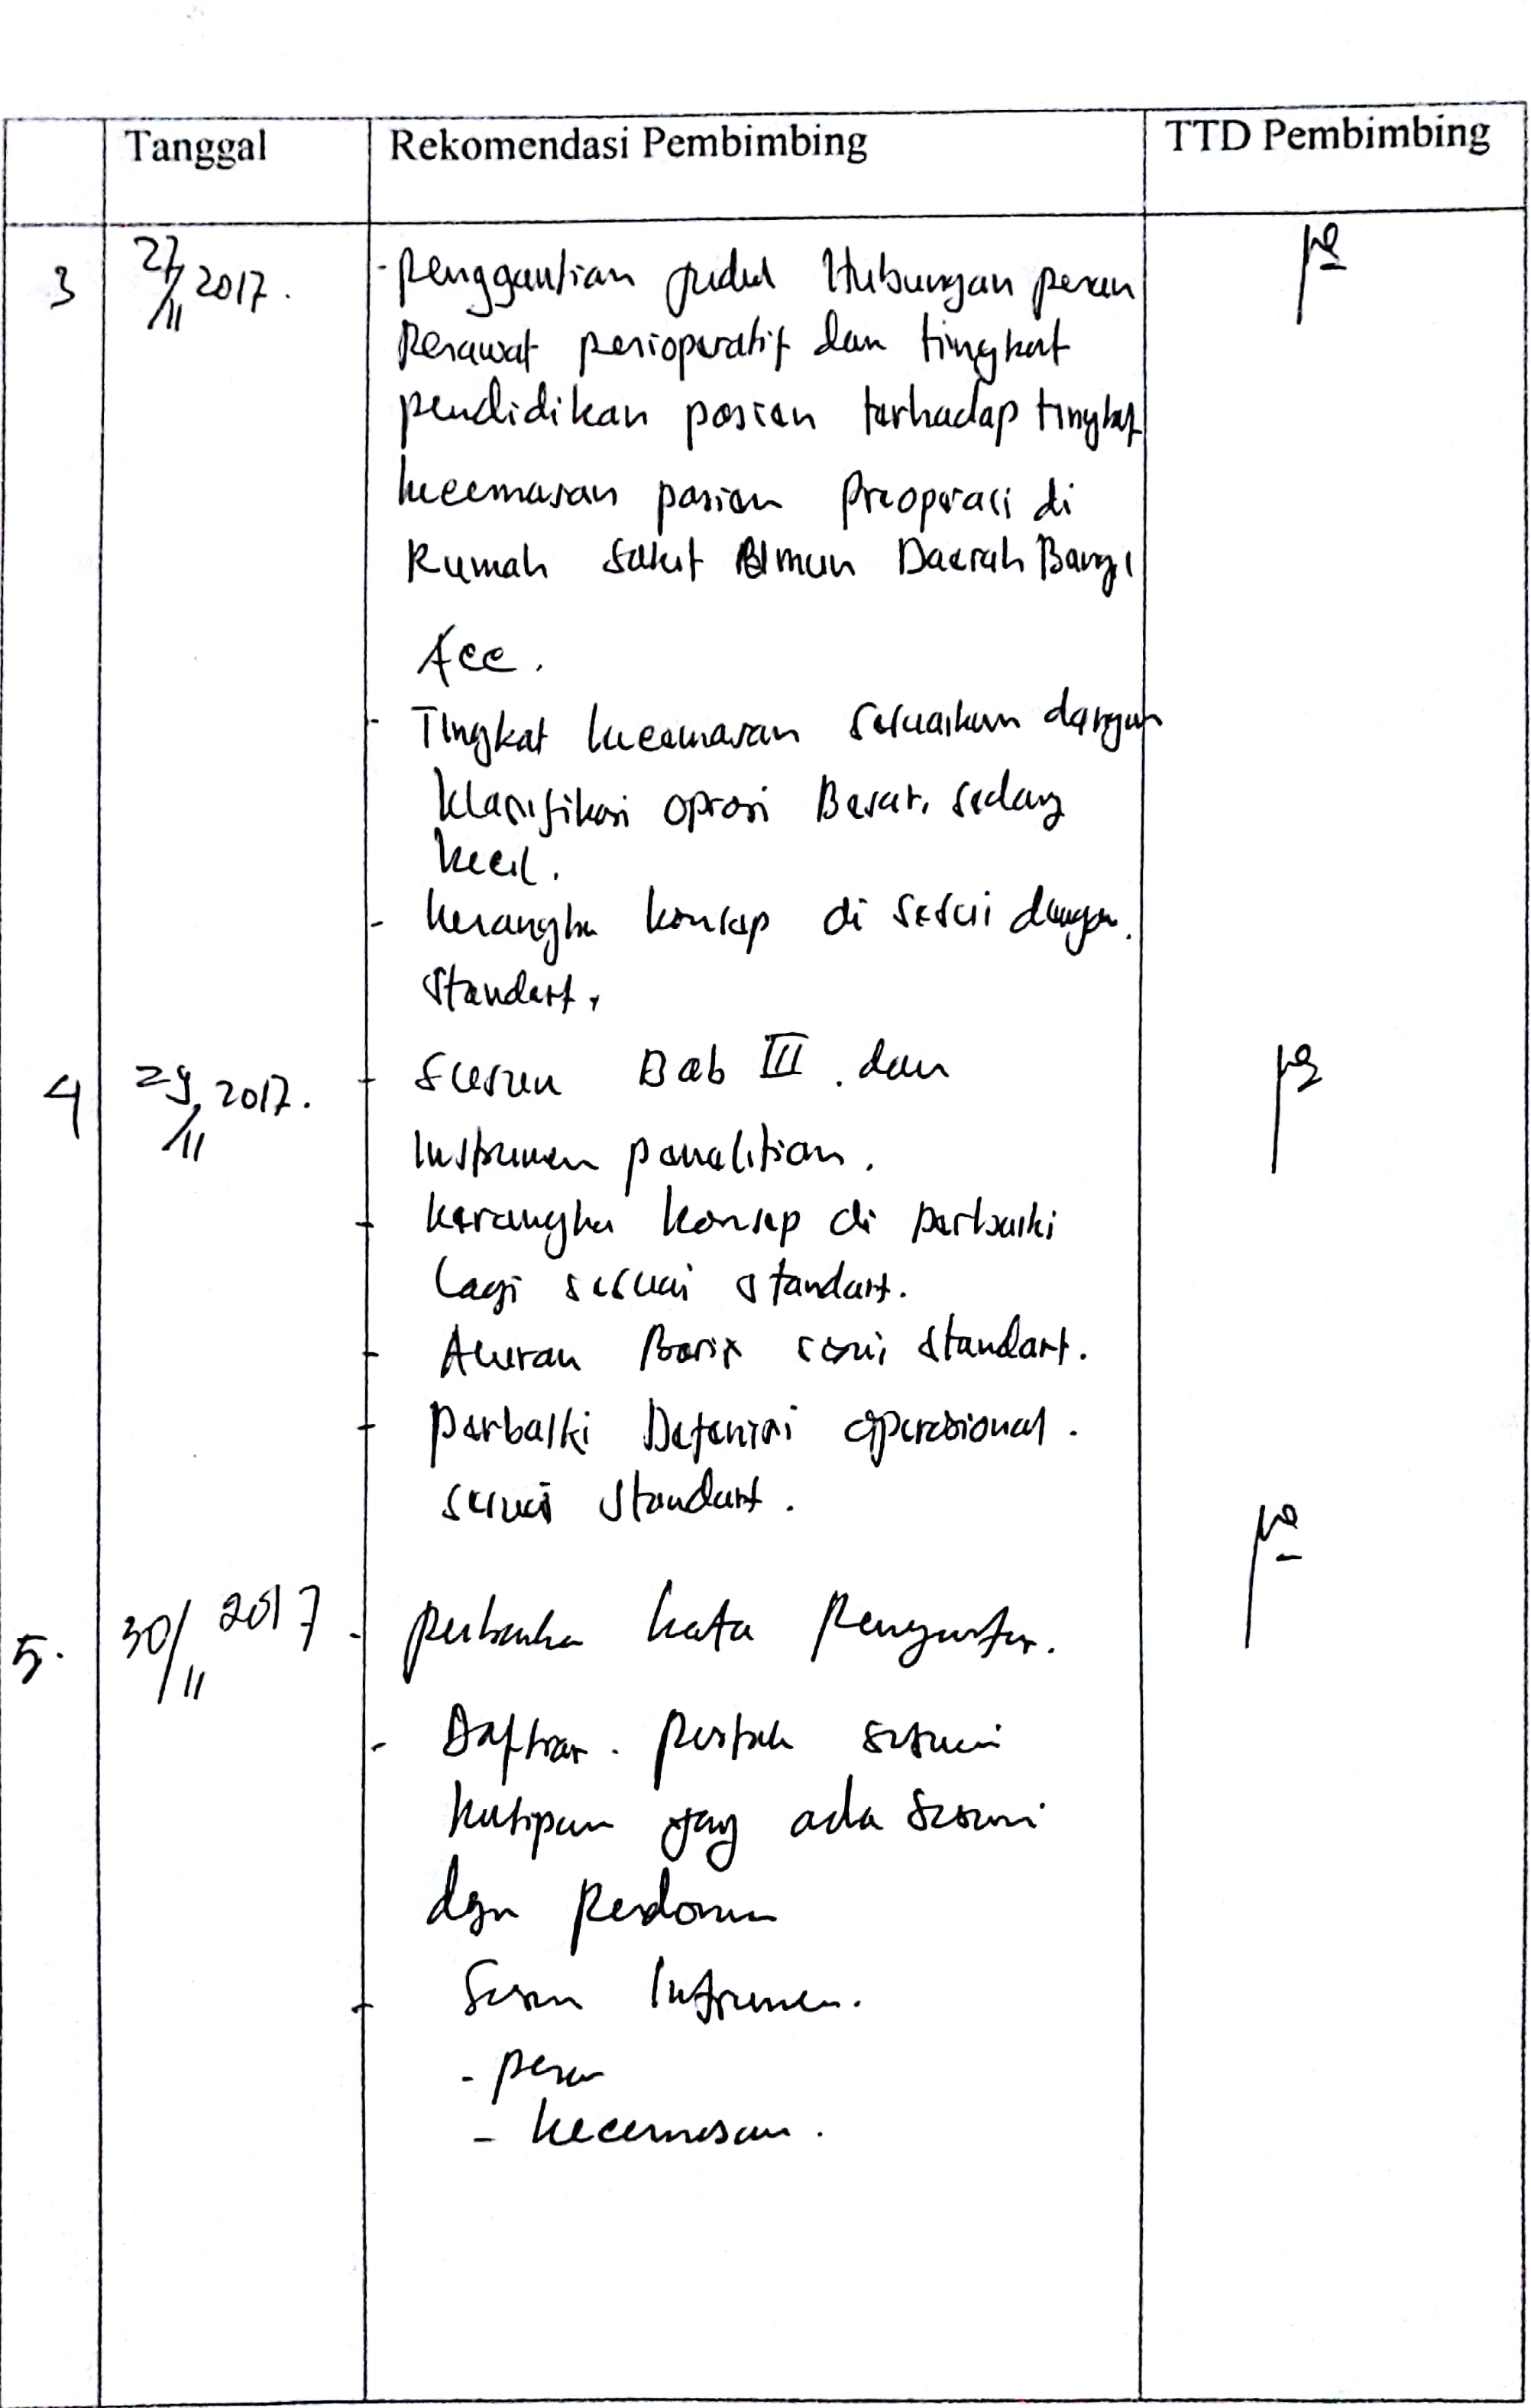 Tanggal Rekomendasi Pembimbing TTD Pembimbing
3 27/11 2017. - Penggantian judul Hubungan peran
Perawat perioperatif dan tingkat
pendidikan pasien terhadap tingkat
kecemasan pasien Preoperasi di
Rumah Sakit Umum Daerah Bangil
Acc.
- Tingkat kecemasan sesuaikan dengan
klasifikasi oprasi Besar, sedang
kecil.
- kerangka konsep di sesuai dengan.
standart.
4 29/11 2017. - susun Bab III . dan
Instrumen penelitian.
- kerangka konsep di perbaiki
lagi sesuai standart.
- Aturan standart.
- perbaiki Defenisi operasional.
sesuai standart.
5. 30/11 2017 - kata Pengantar.
- Daftar. pustaka sesuai
kutipan yang ada sesuai
dgn Pedoman
- Susun Instrumen.
- peran
- kecemasan.